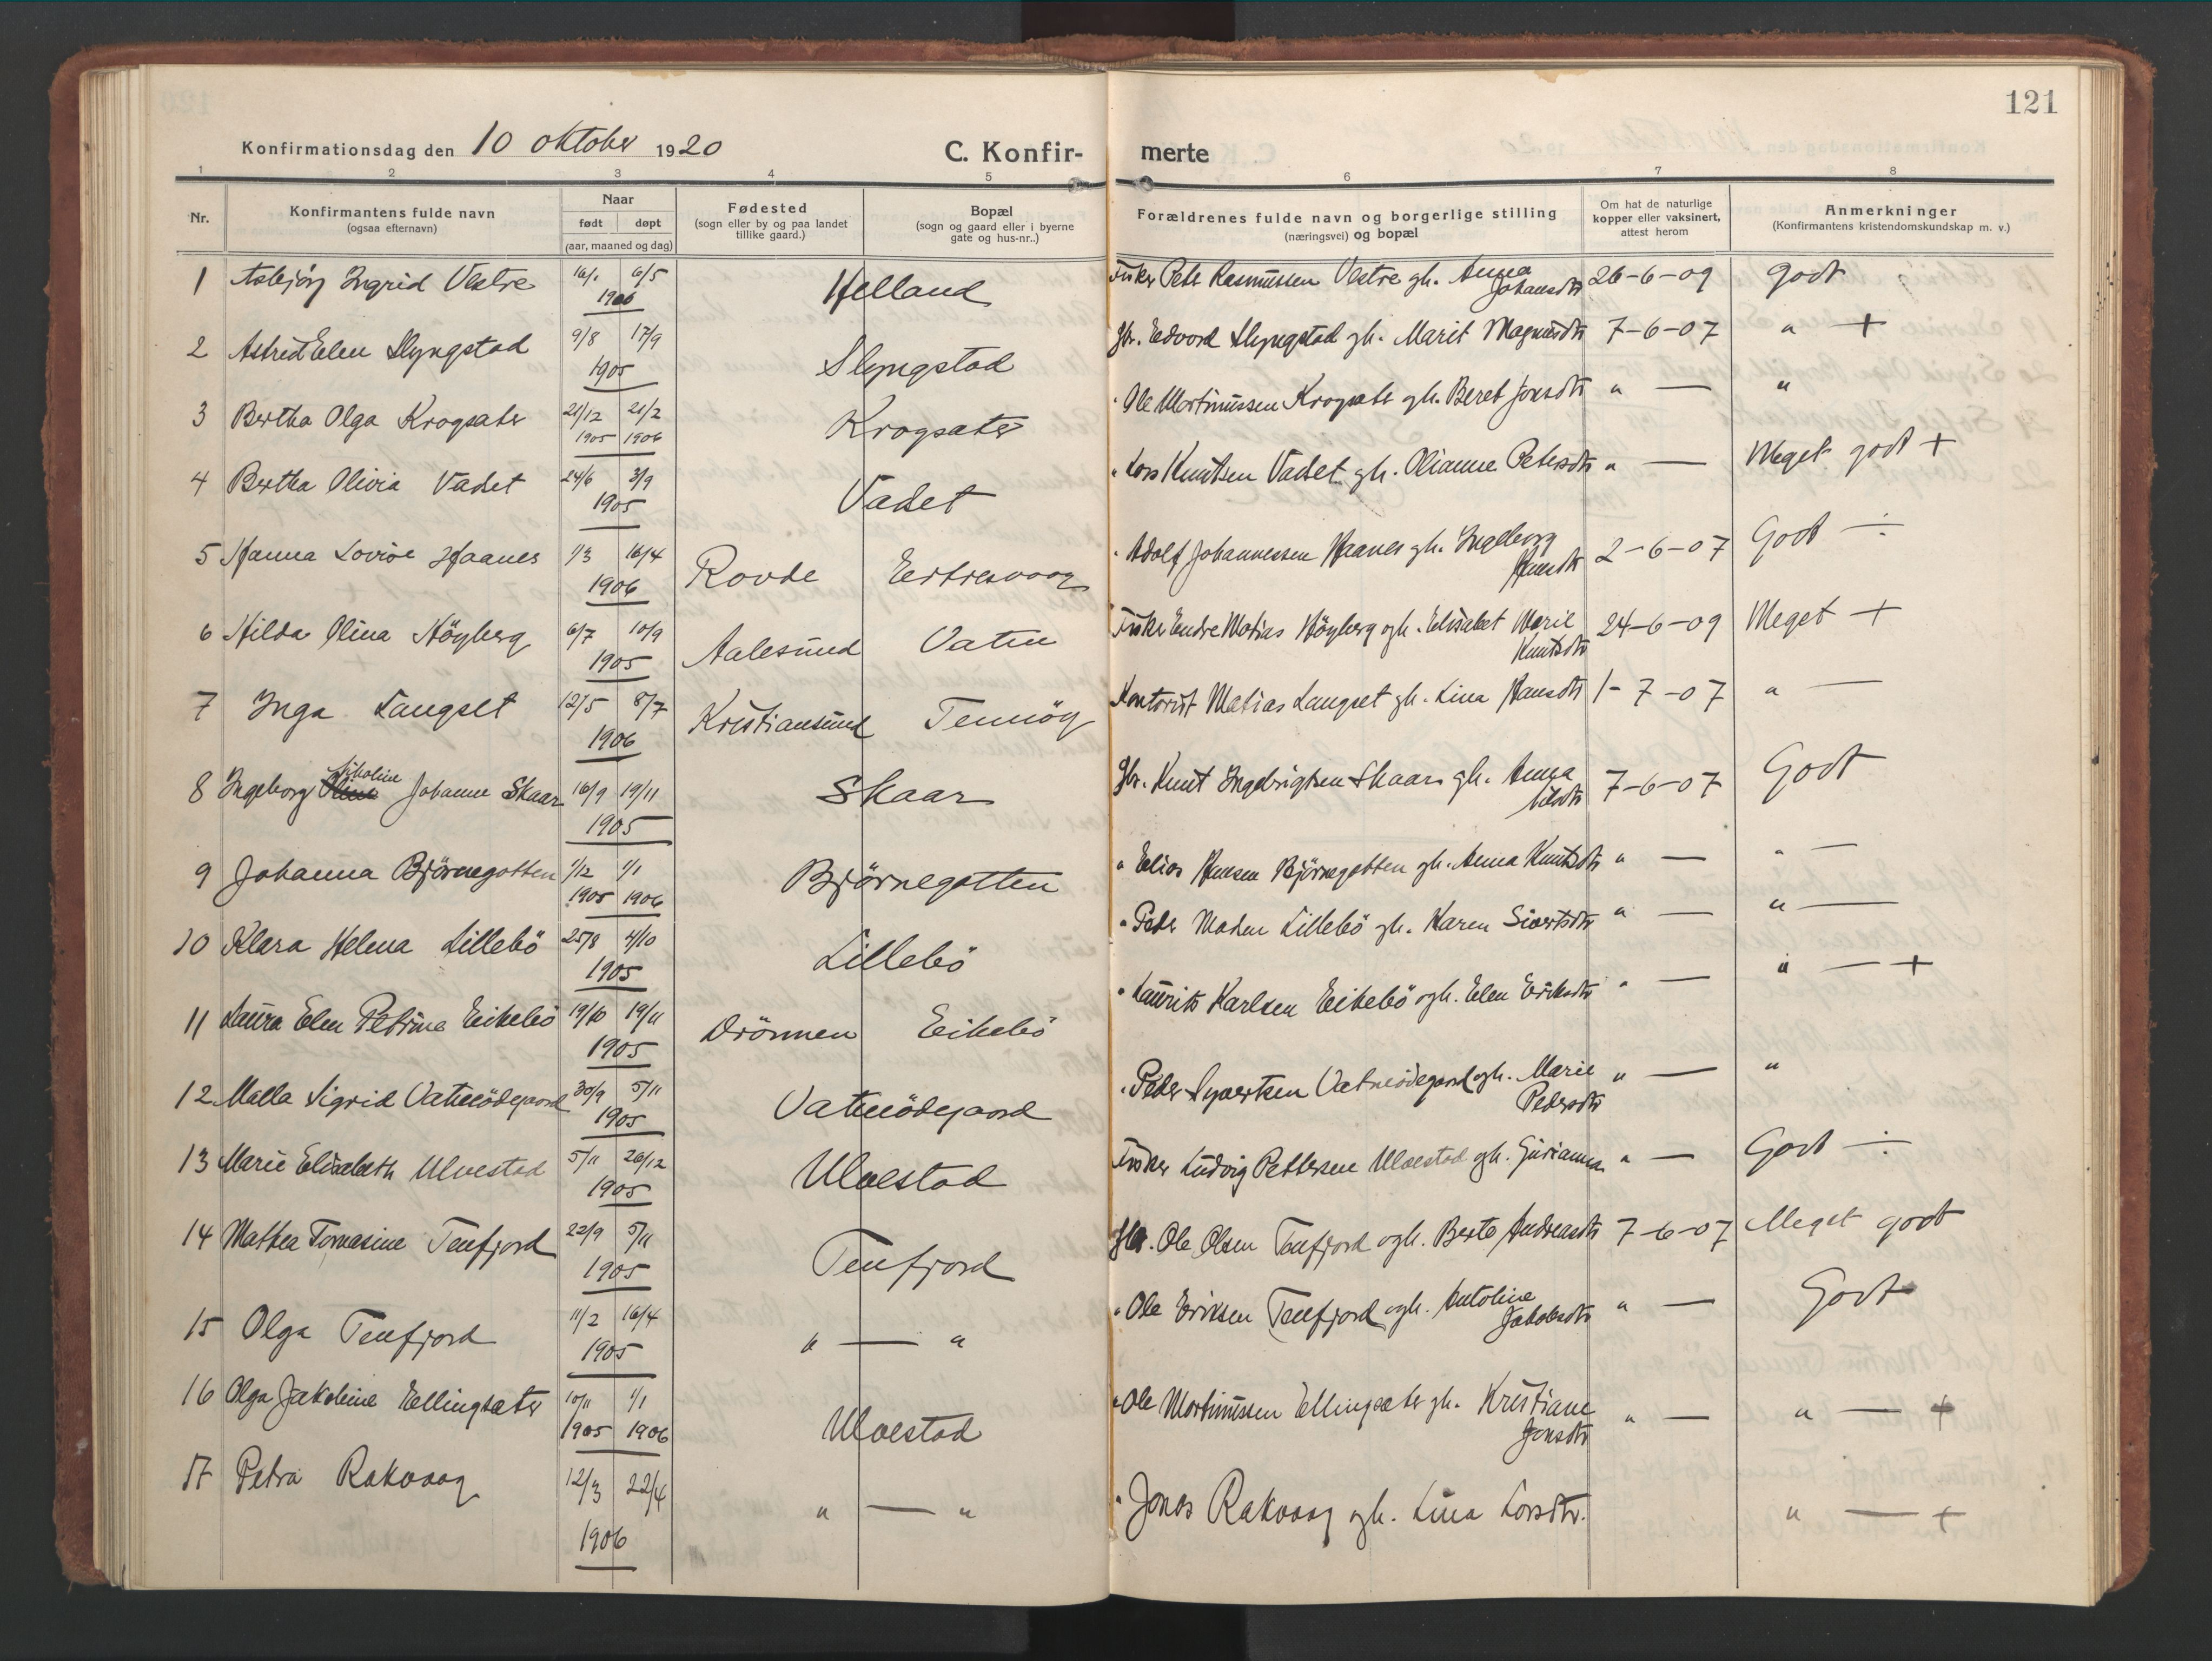 121
Konfirmationsdag den 10 oktober 1920 C. Konfir- merte
1 2 3 4 5 6 7 8
Nr. Konfirmantens fulde navn (ogsaa efternavn) Naar født døpt (aar, maaned og dag) Fødested (sogn eller by og paa landet tillike gaard.) Bopæl (sogn og gaard eller i byerne gate og hus-nr..) Forældrenes fulde navn og borgerlige stilling (næringsvei) og bopæl Om hat de naturlige kopper eller vaksinert, attest herom Anmerkninger (Konfirmantens kristendomskundskap m. v.)
1 Asbjørg Ingrid Vestre 16/1 6/5 1906 Helland Fisker Peter Rasmussen Vestre gh. Anna Johansdtr 26-6-09 godt
2 Astrid Elen Slyngstad 9/8 17/9 1905 Slyngstad Gbr. Edvard Slyngstad gh. Marit Magnusdtr 7-6-07 " +
3 Bertha Olga Krogsæter 21/12 21/2 1905 1906 Krogsæter " Ole Martinussen Krogsæter gh. Beret Jonsdtr " — "
4 Bertha Olivia Vadset 24/6 3/9 1905 Vadset " Lars Knutsen Vadset gh. Olianne Petersdtr " — Meget godt +
5 Hanna Lovise Haanes 1/3 16/4 1906 Rovde Eertresvaag " Adolf Johannessen Haanes gh. Ingeborg Knutsdtr 2-6-07 Godt ÷
6 Hilda Olina Höyberg 6/7 10/9 1905 Aalesund Vatne Fisker Endre Matias Höyberg gh. Elisabet Marie Knutsdtr 24-6-09 Meget +
7 Inga Langset 12/5 8/7 1906 Kristiansund Tennöy Kontorist Matias Langset gh. Lina Hansdtr 1-7-07 " —
8 Ingeborg Nikoline Johanne Skaar 16/9 19/11 1905 Skaar Gbr. Knut Ingebrigtsen Skaar gh. Anna Nilsdtr 7-6-07 Godt
9 Johanna Björnegotten 1/12 1/1 1905 1906 Björnegotten " Elias Hansen Björnegotten gh. Anna Knutsdtr " — " —
10 Klara Helena Lillebö 25/8 4/10 1905 Lillebö " Peder Madsen Lillebö gh. Karen Sivertsdtr " — " —
11 Laura Elen Petrine Eikebö 19/10 19/11 1905 Drönnen Eikebö " Laurits Karlsen Eikebö gh. Elen Eriksdtr " — " — +
12 Malla Sigrid Vatneödegaard 30/9 5/11 1905 Vatneödegaard " Peder Syvertsen Vatneödegaard gh. Marie Pedersdtr " — "
13 Marie Elisabeth Ulvestad 5/11 26/12 1905 Ulvestad Fisker Ludvig Pettersen Ulvestad gh. Gurianna " — Godt ÷
14 Mathea Tomasine Tenfjord 22/9 5/11 1905 Tenfjord Gbr. Ole Olsen Tenfjord gh. Berte Andreasdtr 7-6-07 Meget godt
15 Olga Tenfjord 11/2 16/4 1905 " — " " Ole Eriksen Tenfjord gh. Antoline Jakobsdtr " — Godt
16 Olga Jakobine Ellingsæter 10/11 1/1 1905 1906 Ulvestad " Ole Martinussen Ellingsæter gh. Kristiane Jonsdtr " — " — +
17 Petra Rakvaag 12/3 22/4 1906 " — " " Jonas Rakvaag gh. Lina Larsdtr. " — +